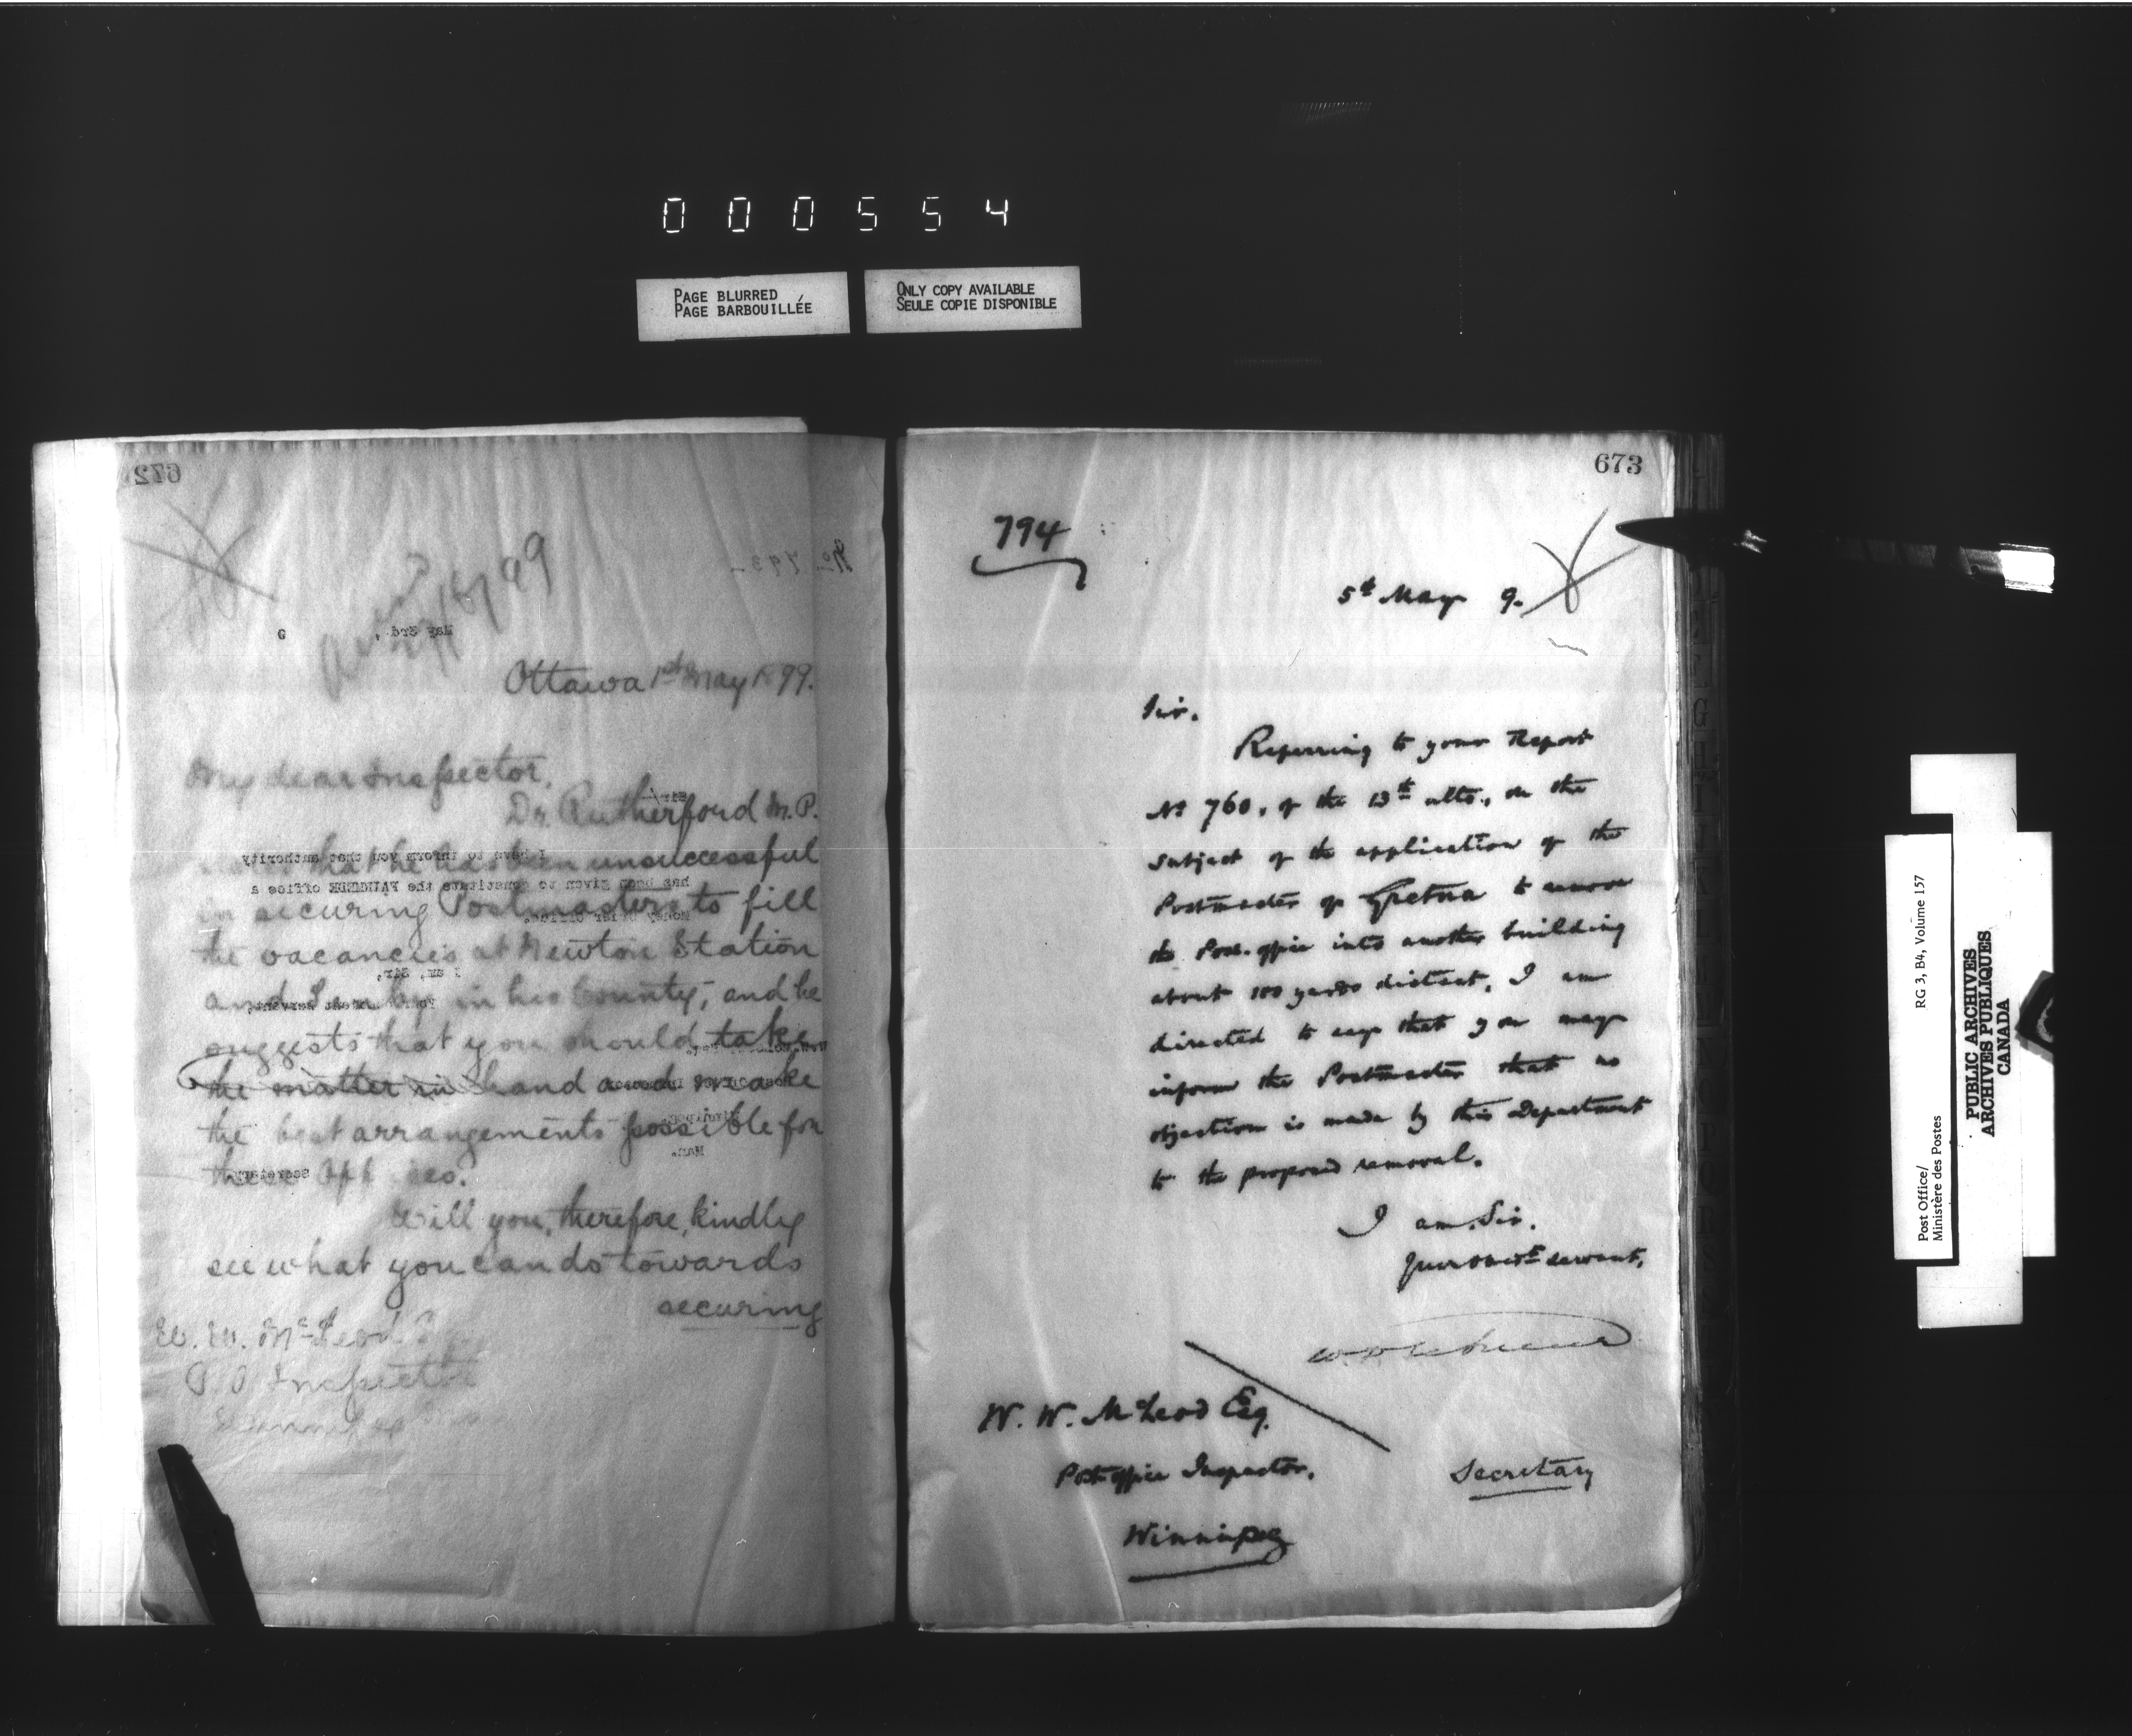 000554
PAGE BLURRED
PAGE BARBOUILLÉE
ONLY COPY AVAILABLE
SEULE COPIE DISPONIBLE
672
No 793
May 3rd, 9
Ottawa 1st May 1899.
My dear Inspector,
Dr. Rutherford M.P.
that he has been unsuccessful
in securing Postmasters to fill
the vacancies at Newton Station
and in his County, and he
suggests that you should take
the matter in hand and make
the best arrangements possible for
these Offices.
Will you, therefore, kindly
see what you can do towards
securing
W. W. McLeod
P.O. Inspector
Winnipeg
Sir,
I have to inform you that authority
has been given to constitute the office a
Money Order Office.
I am, Sir,
Your obedient servant,
Man.
Secretary
673
794
5th May 9.
Sir.
Referring to your Report
No 760, of the 13th ulto., on the
subject of the application of the
Postmaster of Gretna to remove
the Post-office into another building
about 100 yards distant, I am
directed to say that you may
inform the Postmaster that no
objection is made by this Department
to the proposed removal.
I am, Sir.
Your obedt servant,
W. W. McLeod Esq.
Post office Inspector,
Secretary
Winnipeg
Post Office/
Ministère des Postes
RG 3, B4, Volume 157
PUBLIC ARCHIVES
ARCHIVES PUBLIQUES
CANADA